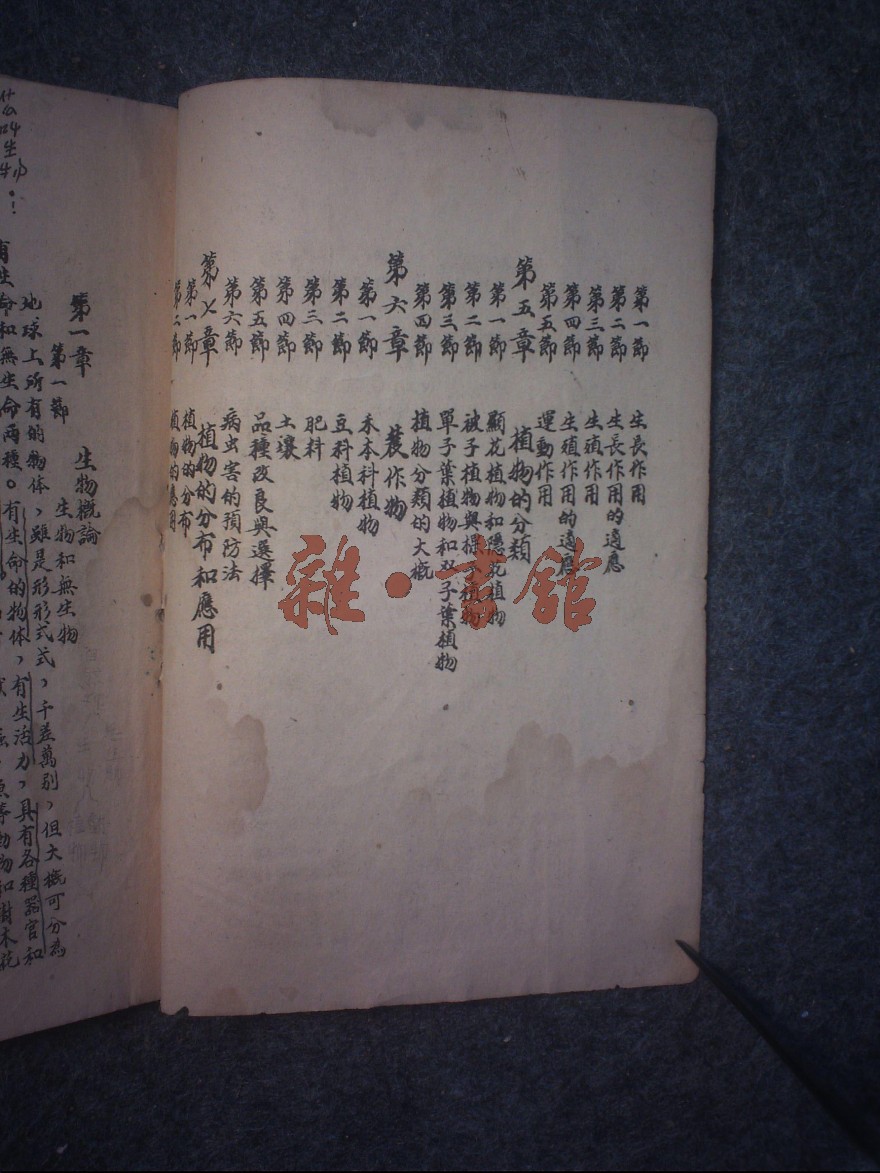 第一節 生長作用
第二節 生長作用的適應
第三節 生殖作用
第四節 生殖作用的適應
第五節 運動作用
第五章 植物的分類
第一節 顯花植物和隱花植物
第二節 被子植物與裸子植物
第三節 單子葉植物和双子葉植物
第四節 植物分類的大概
第六章 農作物
第一節 禾本科植物
第二節 豆科植物
第三節 肥料
第四節 土壤
第五節 品種改良與選擇
第六節 病虫害的預防法
第七章 植物的分布和應用
第一節 植物的分布
第二節 植物的應用
雜·書館
第一章 生物概論
第一節 生物和無生物
地球上所有的物体，雖是形形式式，千差萬别，但大概可分為
有生命和無生命兩種。有生命的物体，有生活力，具有各種器官和
什么叫生物·！